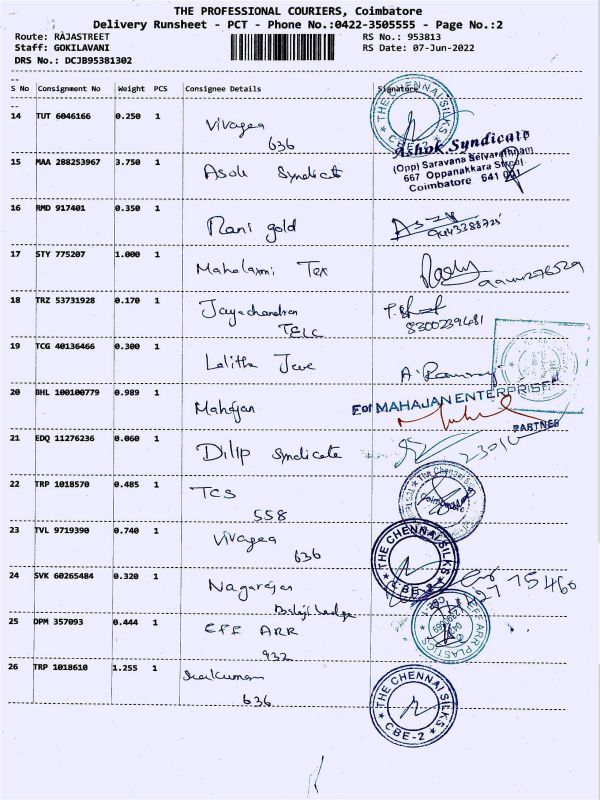 THE PROFESSIONAL COURIERS, Coimbatore
Delivery Runsheet - PCT - Phone No.:0422-3505555 - Page No.:2
Route: RAJASTREET RS No.: 953813
Staff: GOKILAVANI RS Date: 07-Jun-2022
DRS No.: DCJB95381302
S No Consignment No Weight PCS Consignee Details Signature
14 TUT 6046166 0.250 1 Vivagaa
636
THE CHENNAI SILKS
CBE-2
15 MAA 288253967 3.750 1 Asok Syndicate
Ashok Syndicate
(Opp) Saravana Selvarathnam
667 Oppanakkara Street
Coimbatore 641 001
16 RMD 917401 0.350 1 Rani gold
17 STY 775207 1.000 1 Mahalaxmi Tex
18 TRZ 53731928 0.170 1 Jayachandran
TELC
8300239481
19 TCG 40136466 0.300 1 Lalitha
20 BHL 100100779 0.989 1 Mahajan
For MAHAJAN ENTERPRISE
PARTNER
21 EDQ 11276236 0.060 1 Dilip Syndicate
22 TRP 1018570 0.485 1 TCS
558
23 TVL 9719390 0.740 1 Vivagaa
636
THE CHENNAI SILKS
CBE-2
24 SVK 60265484 0.320 1 Nagarajan
25 DPM 357093 0.444 1 EFE ARR
932
26 TRP 1018610 1.255 1
636
THE CHENNAI SILKS
CBE-2